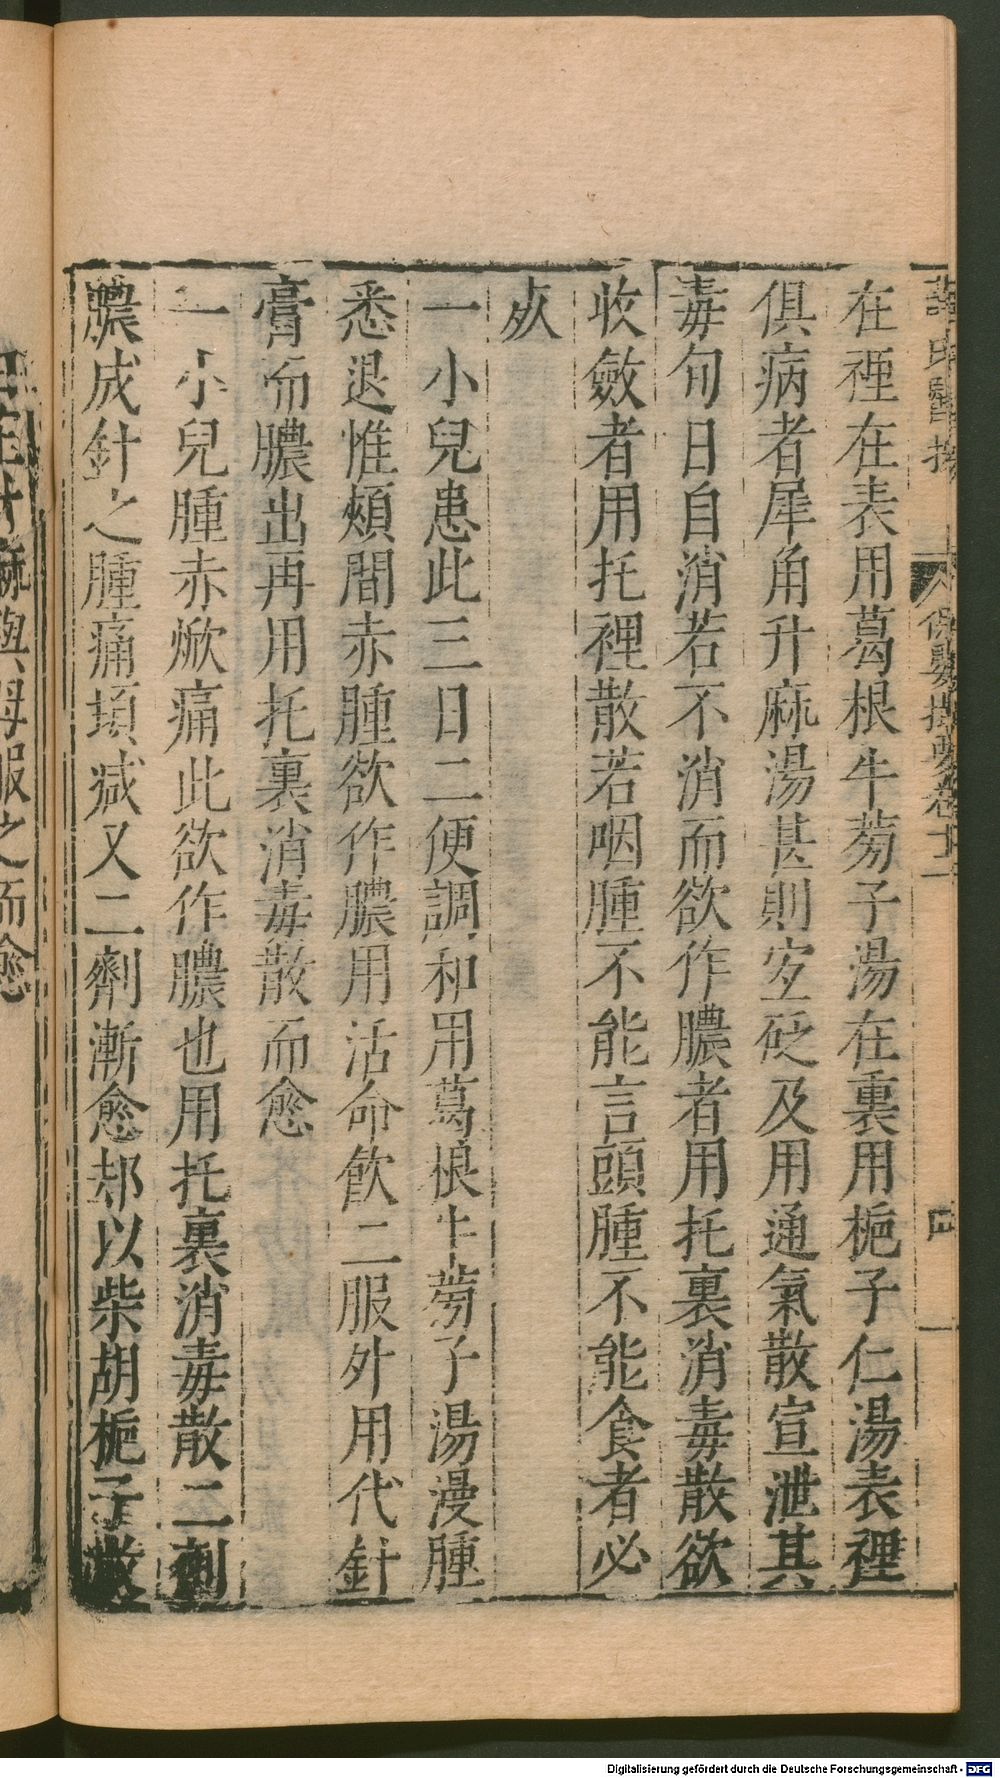 薛氏醫按 保嬰撮要卷十二 四
在裡在表用葛根牛蒡子湯在裏用梔子仁湯表裡
俱病者犀角升麻湯甚則宜砭及用通氣散宣泄其
毒旬日自消若不消而欲作膿者用托裏消毒散欲
收斂者用托裡散若咽腫不能言頭腫不能食者必
死
一小兒患此三日二便調和用葛根牛蒡子湯漫腫
悉退惟頰間赤腫欲作膿用活命飲二服外用代針
膏而膿出再用托裏消毒散而愈
一小兒腫赤焮痛此欲作膿也用托裏消毒散二劑
膿成針之腫痛頃减又二劑漸愈却以柴胡梔子散
麻與母服之而愈
Digitalisierung gefördert durch die Deutsche Forschungsgemeinschaft - DFG